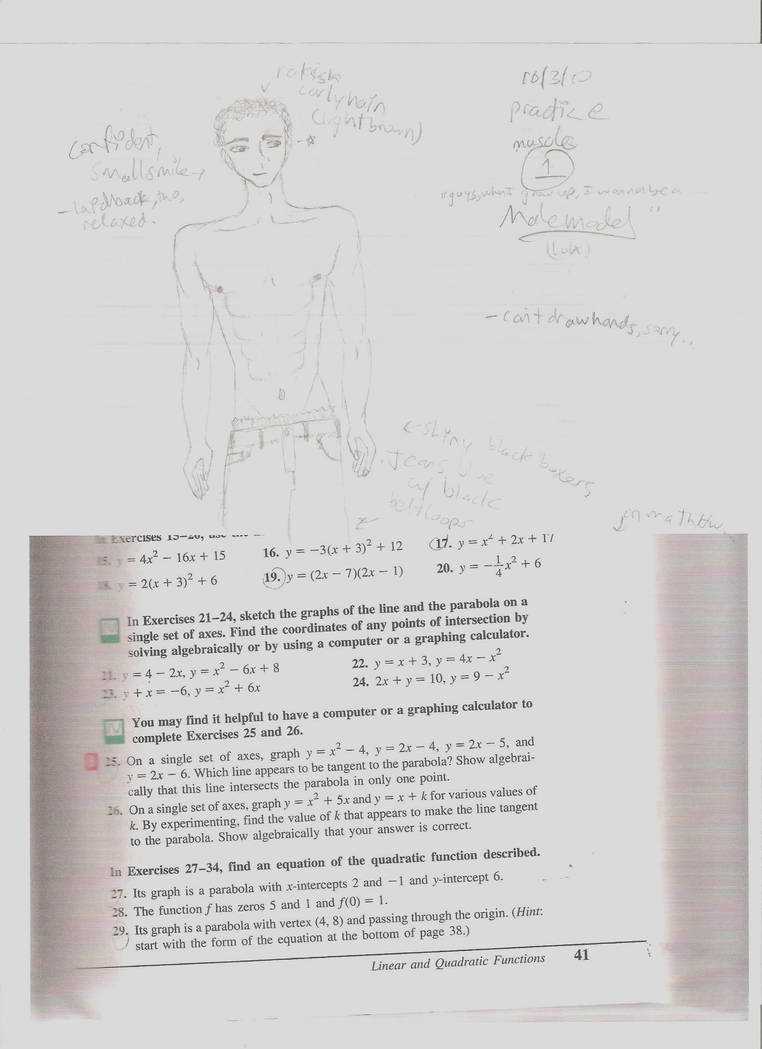 rakish
curly hair
(light brown)
confident,
small smile
- laid back, too,
relaxed.
10/3/10
practice
muscles
1
"guys, when I grow up, I wanna be a
Male model"
(lolx)
- can't draw hands, sorry..
<- shiny black boxers
. Jeans, blue
w/ black
belt loops
on math hw
In Exercises 15–20, use the
15. y = 4x² − 16x + 15
16. y = −3(x + 3)² + 12
17. y = x² + 2x + 17
18. y = 2(x + 3)² + 6
19. y = (2x − 7)(2x − 1)
20. y = −1/4x² + 6
In Exercises 21–24, sketch the graphs of the line and the parabola on a
single set of axes. Find the coordinates of any points of intersection by
solving algebraically or by using a computer or a graphing calculator.
21. y = 4 − 2x, y = x² − 6x + 8
22. y = x + 3, y = 4x − x²
23. y + x = −6, y = x² + 6x
24. 2x + y = 10, y = 9 − x²
You may find it helpful to have a computer or a graphing calculator to
complete Exercises 25 and 26.
25. On a single set of axes, graph y = x² − 4, y = 2x − 4, y = 2x − 5, and
y = 2x − 6. Which line appears to be tangent to the parabola? Show algebrai-
cally that this line intersects the parabola in only one point.
26. On a single set of axes, graph y = x² + 5x and y = x + k for various values of
k. By experimenting, find the value of k that appears to make the line tangent
to the parabola. Show algebraically that your answer is correct.
In Exercises 27–34, find an equation of the quadratic function described.
27. Its graph is a parabola with x-intercepts 2 and −1 and y-intercept 6.
28. The function f has zeros 5 and 1 and f(0) = 1.
29. Its graph is a parabola with vertex (4, 8) and passing through the origin. (Hint:
start with the form of the equation at the bottom of page 38.)
Linear and Quadratic Functions 41